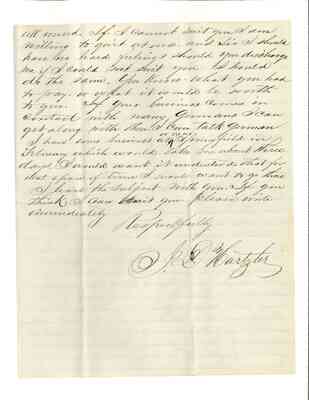 all winds. If I cannot suit you I am
willing to quit at once and Sir I should
have no hard feelings should you discharge
me if I could not suit you. I should
do the same. You know what you had
to pay or what it would be worth
to you. If your business comes in
contact with many Germans I can
get along with them I can talk German
I have some business at or near Springfield in
February which would take me about three
days I would want it understood that for
that space of time I would want to go there
I leave the subject with you. If you
think I can suit you please write
immediately
Respectfully
J. D. Hartzler